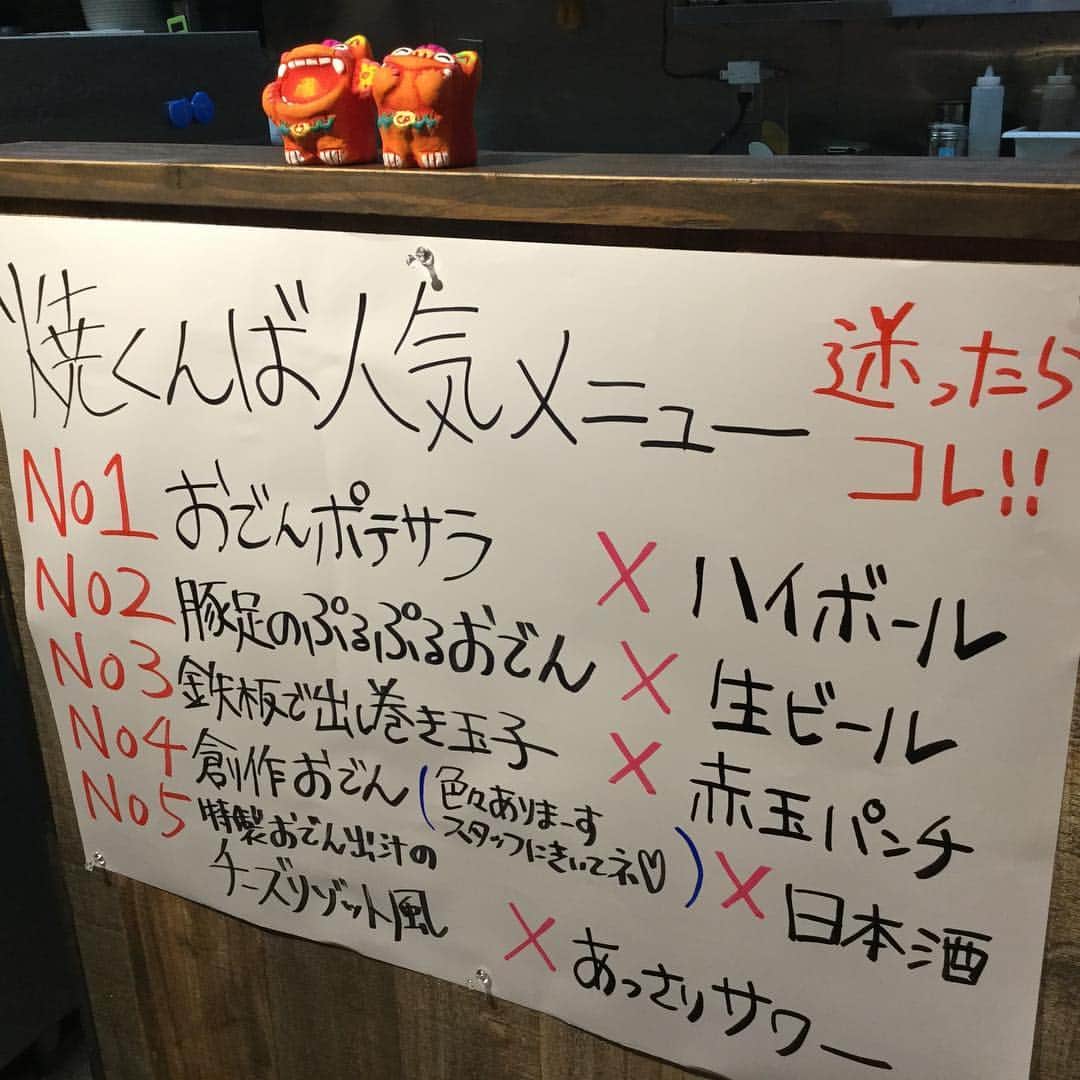 焼くんば人気メニュー
迷ったら
コレ!!
No1 おでんポテサラ × ハイボール
No2 豚足のぷるぷるおでん × 生ビール
No3 鉄板で出し巻き玉子 × 赤玉パンチ
No4 創作おでん (色々ありまーす
スタッフにきいてネ♡) × 日本酒
No5 特製おでん出汁の
チーズリゾット風 × あっさりサワー